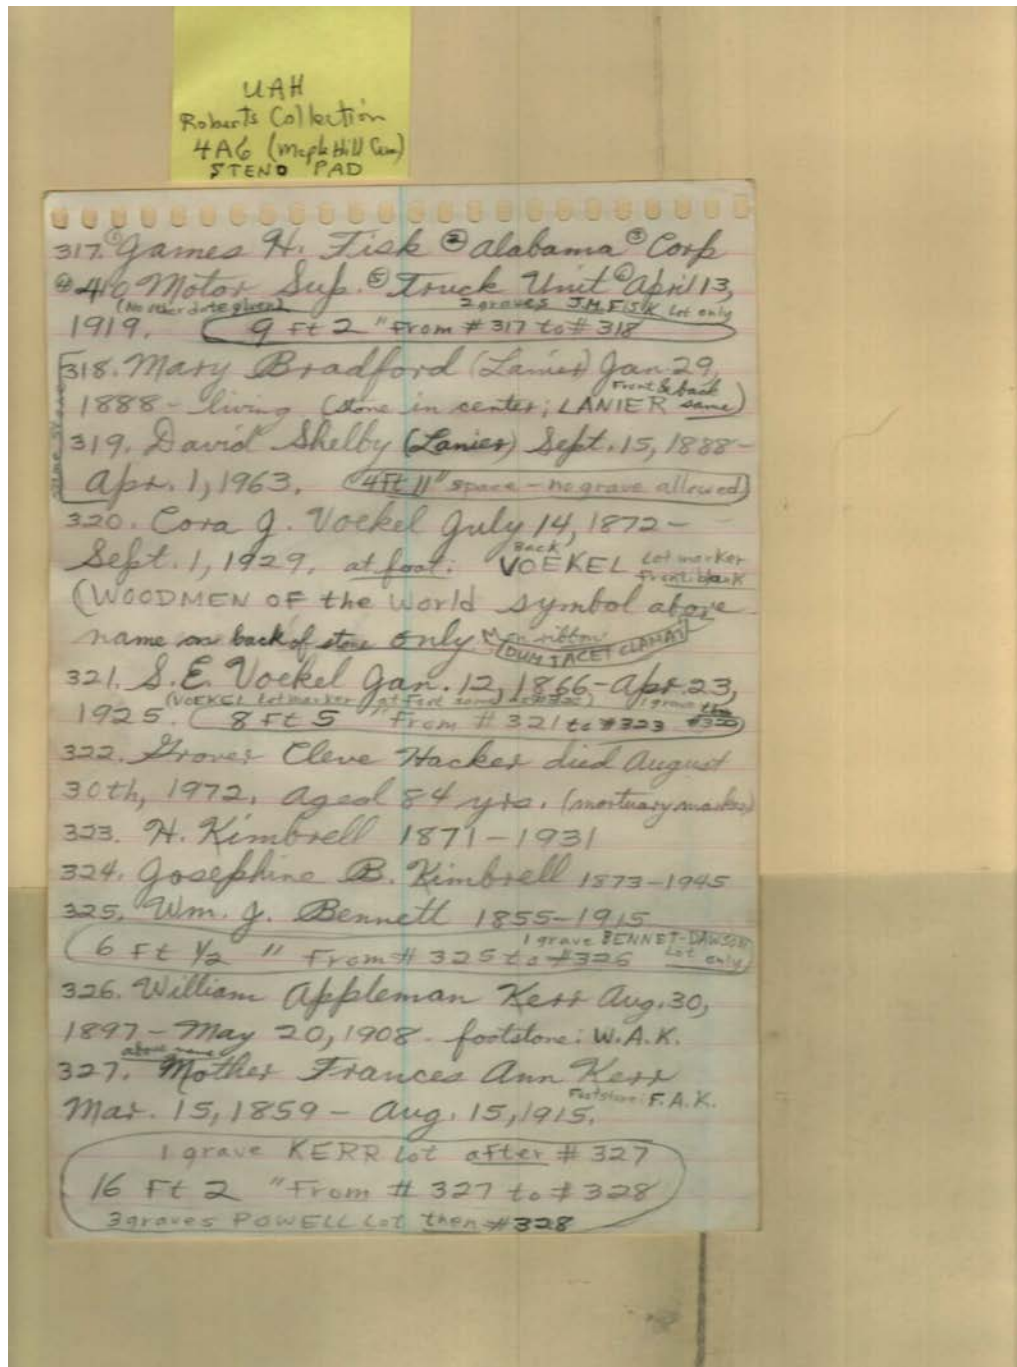 UAH
Roberts Collection
4A6 (Maple Hill Cem)
STENO PAD
317. ① James H. Fisk ② Alabama ③ Corp
④ 410 Motor Sup. ⑤ Truck Unit ⑥ April 13,
(No other date given) 2 graves J.M. FISK Lot only
1919. 9 Ft 2 " From # 317 to # 318
318. Mary Bradford (Lanier) Jan. 29,
1888 - living (stone in center; LANIER Front & back same)
319. David Shelby (Lanier) Sept. 15, 1888 -
Apr. 1, 1963. 4 Ft 11" space - no grave allowed
same stone
320. Cora J. Voekel July 14, 1872 -
Sept. 1, 1929. at foot: Back VOEKEL Lot marker Front: blank
(WOODMEN OF the World symbol above
name on back of stone only on ribbon (DUM TACET CLAMAT)
321. S.E. Voekel Jan. 12, 1866 - Apr. 23,
(VOEKEL Lot marker at Foot same as #320) 1 grave then
1925. 8 Ft 5 " From # 321 to #323 #320
322. Grover Cleve Hacker died August
30th, 1972. Aged 84 yrs. (mortuary marker)
323. H. Kimbrell 1871-1931
324. Josephine B. Kimbrell 1873-1945
325. Wm. J. Bennett 1855-1915
6 Ft 1/2 " From # 325 to #326 1 grave BENNET-DAWSON Lot only
326. William Appleman Kerr Aug. 30,
1897 - May 20, 1908 - footstone: W.A.K.
above name
327. Mother Frances Ann Kerr
Mar. 15, 1859 - Aug. 15, 1915. Footstone: F.A.K.
1 grave KERR Lot after # 327
16 Ft 2 " From # 327 to # 328
3 graves POWELL Lot then #328